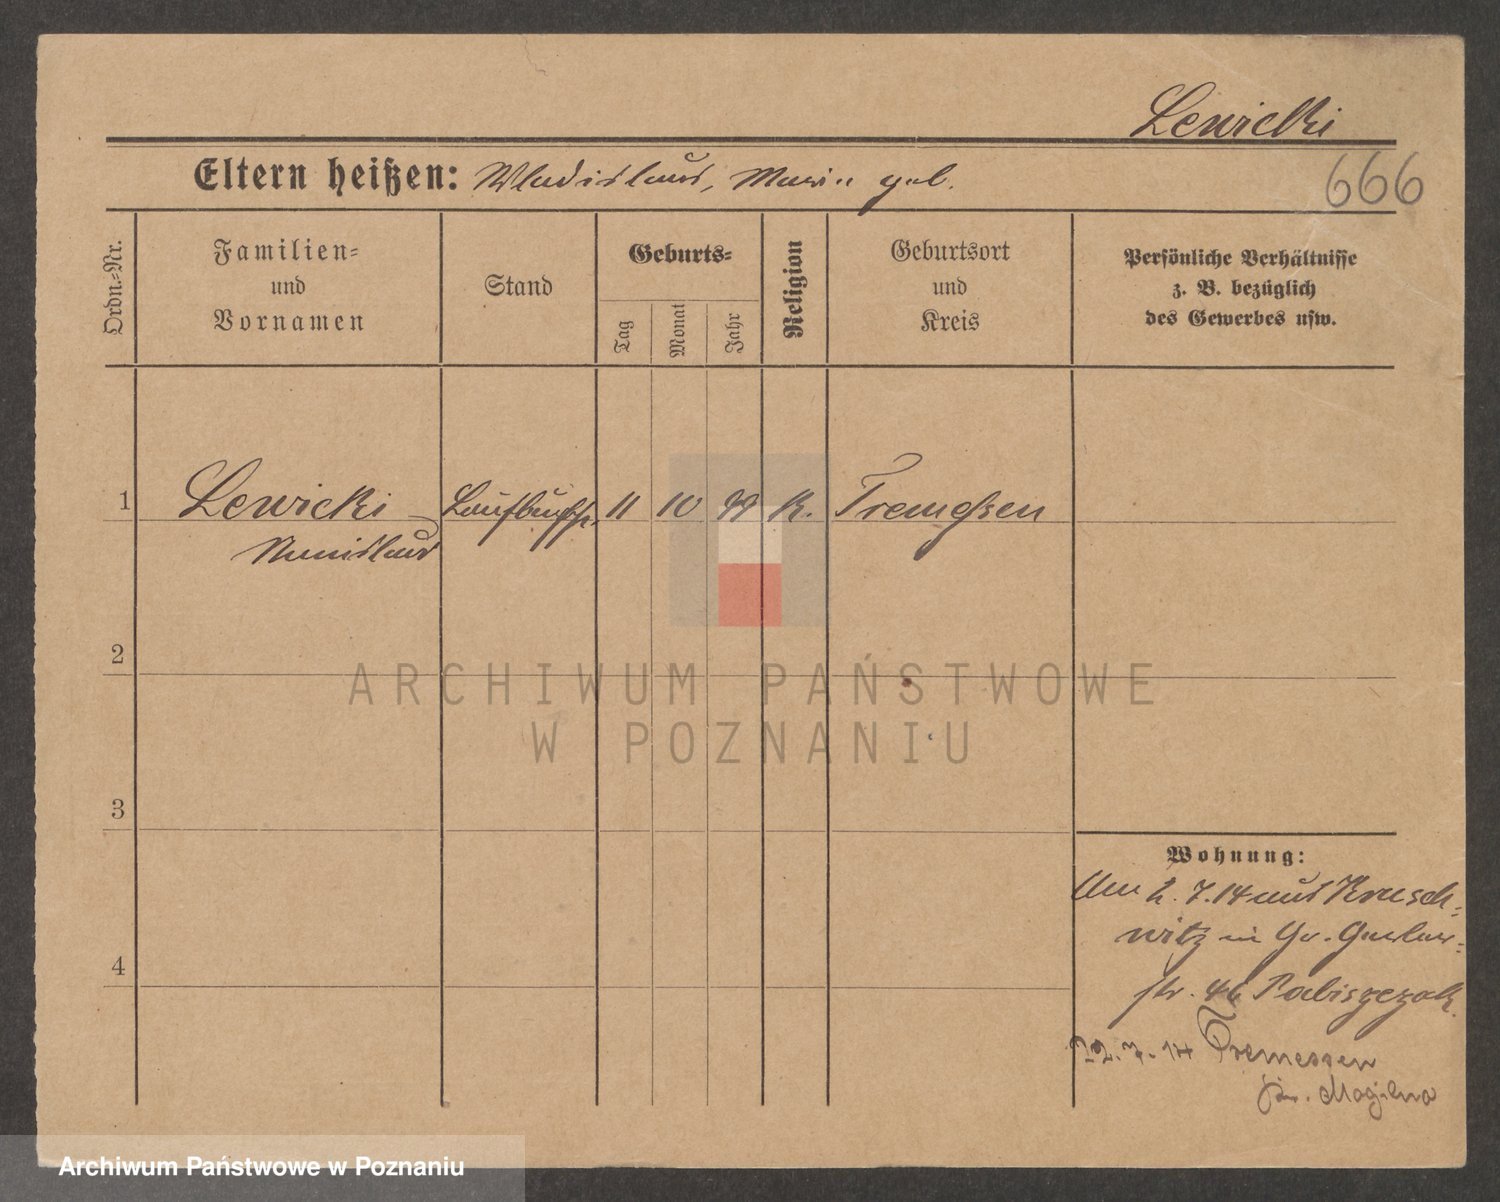 Lewicki
Eltern heißen: Wladislaus, Maria geb.
666
Ordn.-Nr.
Familien-
und
Vornamen
Stand
Geburts-
Tag
Monat
Jahr
Religion
Geburtsort
und
Kreis
Persönliche Verhältnisse
z. B. bezüglich
des Gewerbes usw.
1
Lewicki
Laufbursche
11
10
99
K.
Tremeßen
2
3
4
Wohnung:
Am 2.7.14 aus Krusch-
witz in Gr. Gerber-
str. 46
22.7.14 Tremessen
Kr. Mogilno
ARCHIWUM PAŃSTWOWE
W POZNANIU
Archiwum Państwowe w Poznaniu